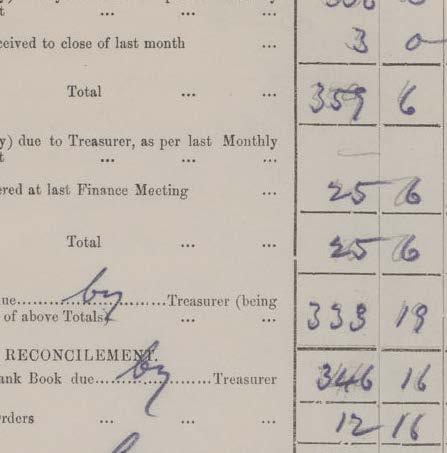 t ... ... ...
ceived to close of last month ... 3 0
Total ... ... 359 6
y) due to Treasurer, as per last Monthly
t ... ... ... —
ered at last Finance Meeting ... 25 6
Total ... ... 25 6
ue..........by..........Treasurer (being
of above Totals) ... ... 333 19
RECONCILEMENT.
ank Book due..........by..........Treasurer 346 16
rders ... ... ... 12 16